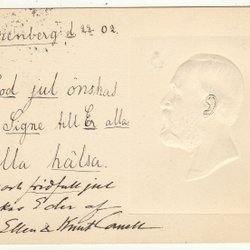 kenberg d 22 02.
od jul önskas
Signe till Er alla
lla hälsa.
och fridfull jul
Eder af
Ellen &